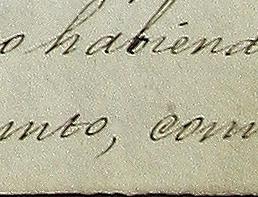 o habiend
unto, com